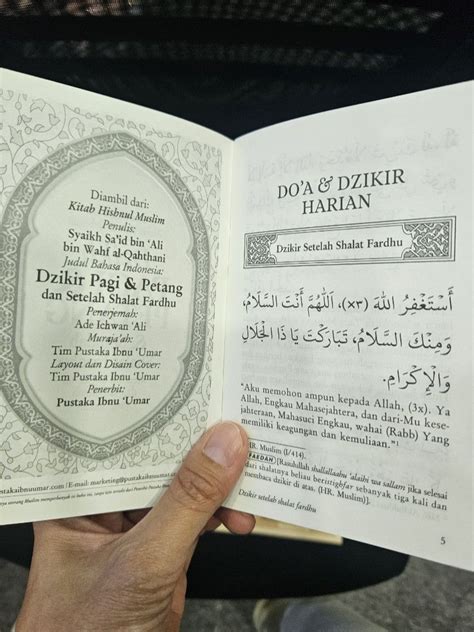 Diambil dari:
Kitab Hishnul Muslim
Penulis:
Syaikh Sa'id bin 'Ali
bin Wahf al-Qahthani
Judul Bahasa Indonesia:
Dzikir Pagi & Petang
dan Setelah Shalat Fardhu
Penerjemah:
Ade Ichwan 'Ali
Muraja'ah:
Tim Pustaka Ibnu 'Umar
Layout dan Disain Cover:
Tim Pustaka Ibnu 'Umar
Penerbit:
Pustaka Ibnu 'Umar
E-mail: marketing@pustakaibnuumar.com
DO'A & DZIKIR
HARIAN
Dzikir Setelah Shalat Fardhu
أَسْتَغْفِرُ اللهَ (٣x)، اَللَّهُمَّ أَنْتَ السَّلَامُ،
وَمِنْكَ السَّلَامُ، تَبَارَكْتَ يَا ذَا الْجَلَالِ
وَالْإِكْرَامِ.
"Aku memohon ampun kepada Allah, (3x). Ya
Allah, Engkau Mahasejahtera, dan dari-Mu kese-
jahteraan, Mahasuci Engkau, wahai (Rabb) Yang
memiliki keagungan dan kemuliaan."¹
HR. Muslim (I/414).
FAEDAH [Rasulullah shallallaahu 'alaihi wa sallam jika selesai
dari shalatnya beliau beristighfar sebanyak tiga kali dan
membaca dzikir di atas. (HR. Muslim)].
Dzikir setelah shalat fardhu
5